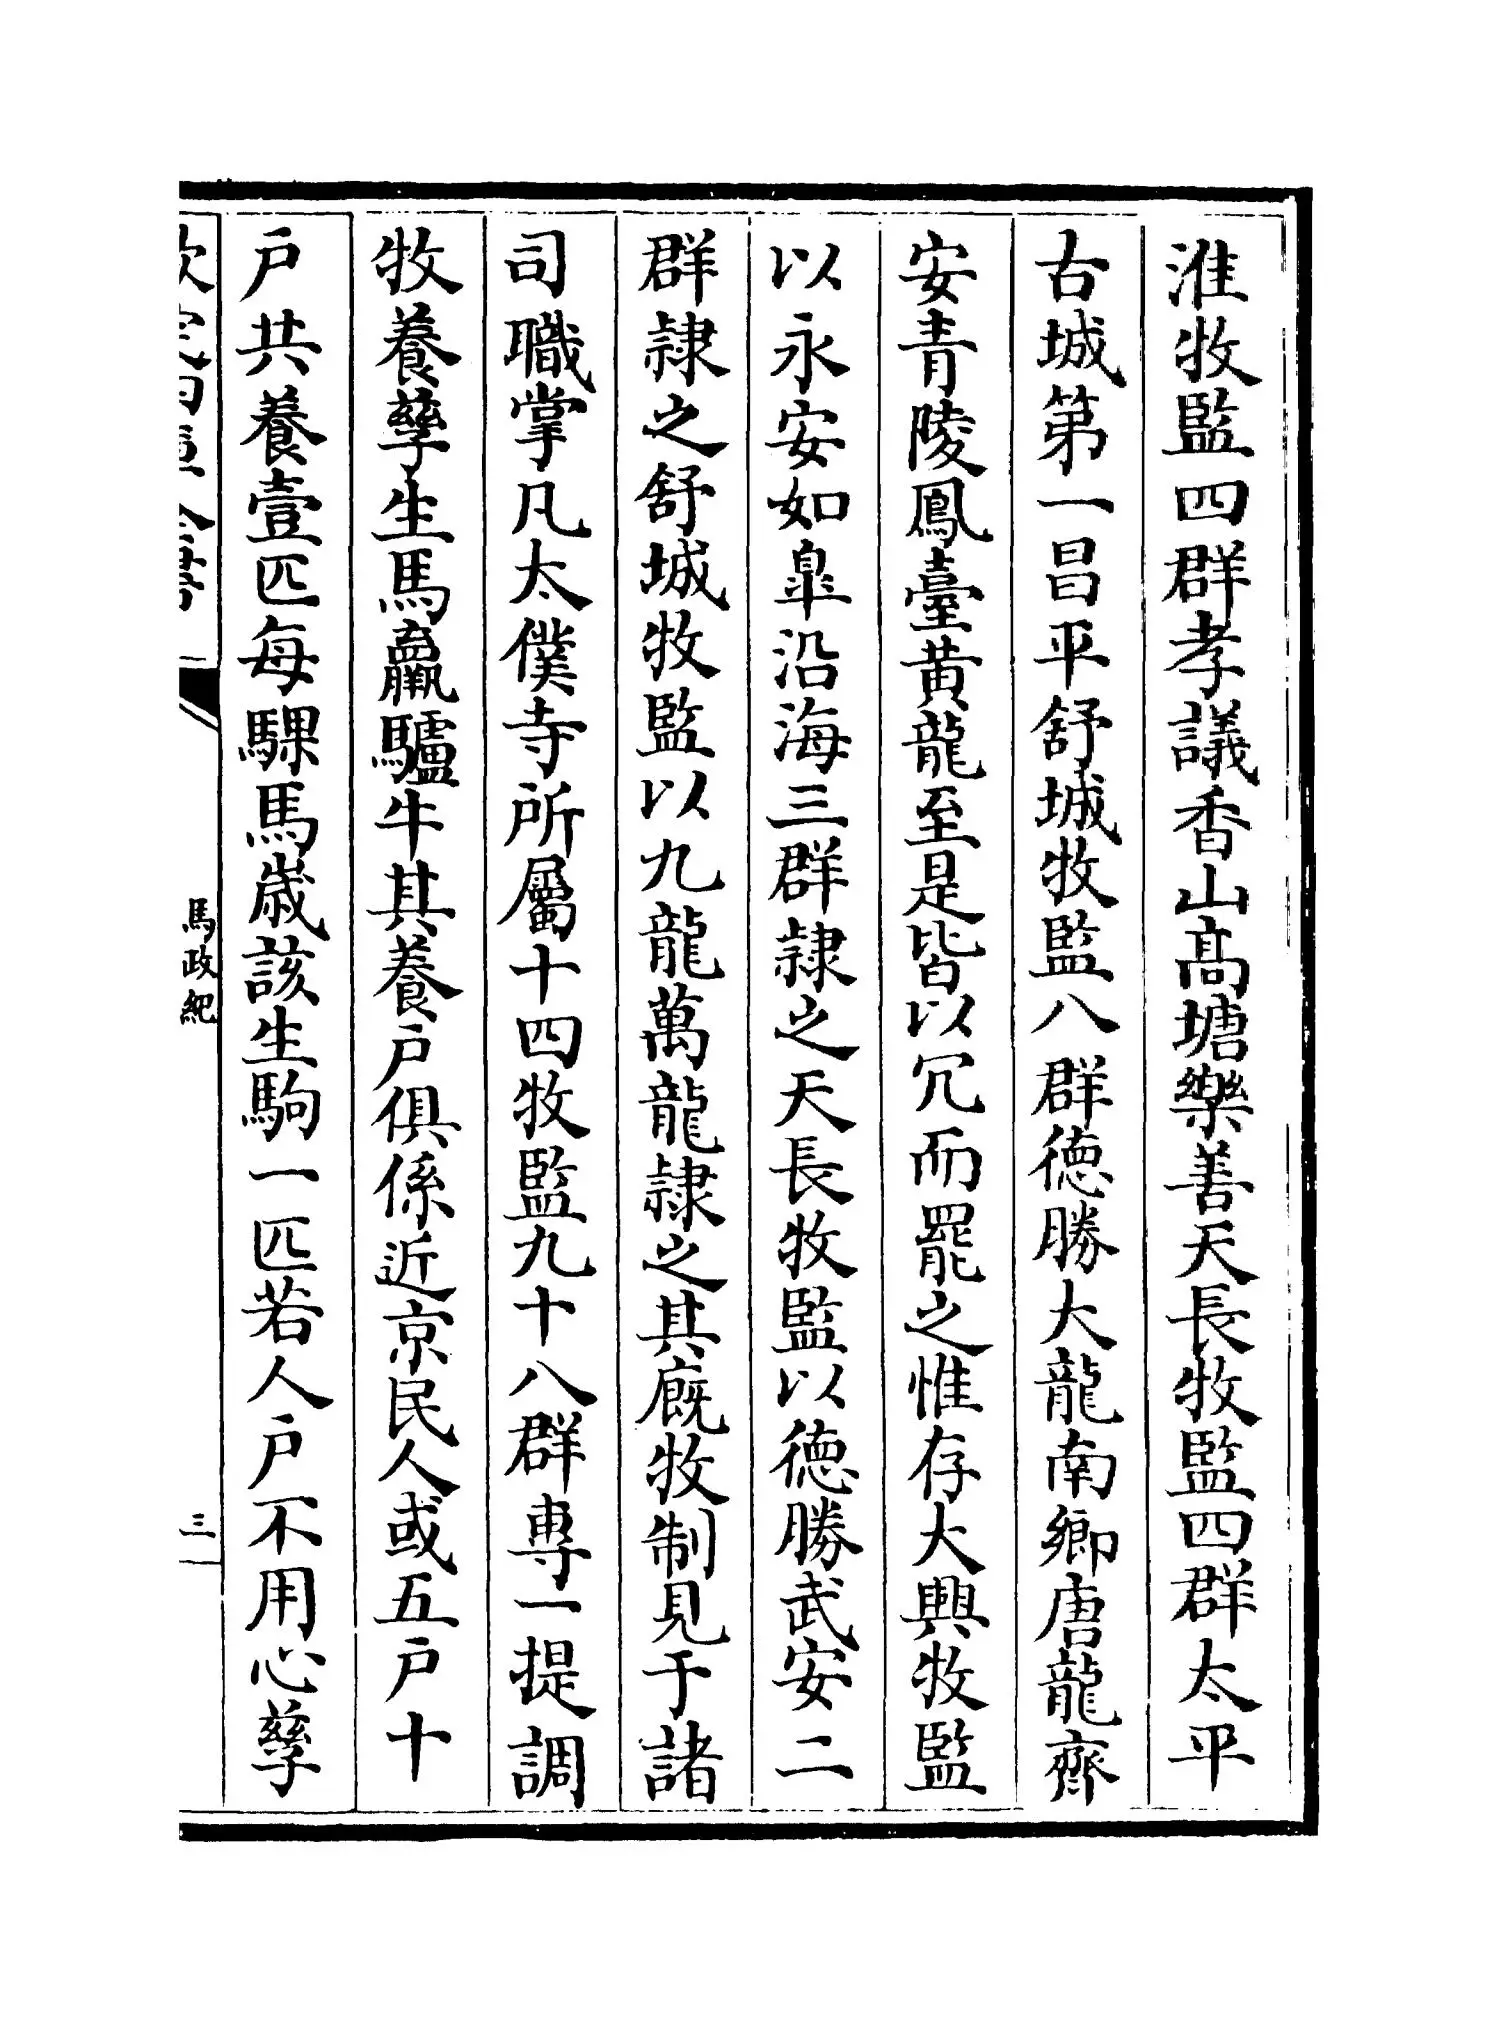 淮牧監四群孝議香山髙塘樂善天長牧監四群太平
古城第一昌平舒城牧監八群徳勝大龍南鄉唐龍齊
安青陵鳳臺黃龍至是皆以冗而罷之惟存大興牧監
以永安如臯沿海三群隷之天長牧監以徳勝武安二
群隷之舒城牧監以九龍萬龍隷之其廐牧制見于諸
司職掌凡太僕寺所屬十四牧監九十八群専一提調
牧養孳生馬驘驢牛其養户俱係近京民人或五户十
户共養壹匹每騍馬歲該生駒一匹若人户不用心孳
欽定四庫全書
馬政紀
三